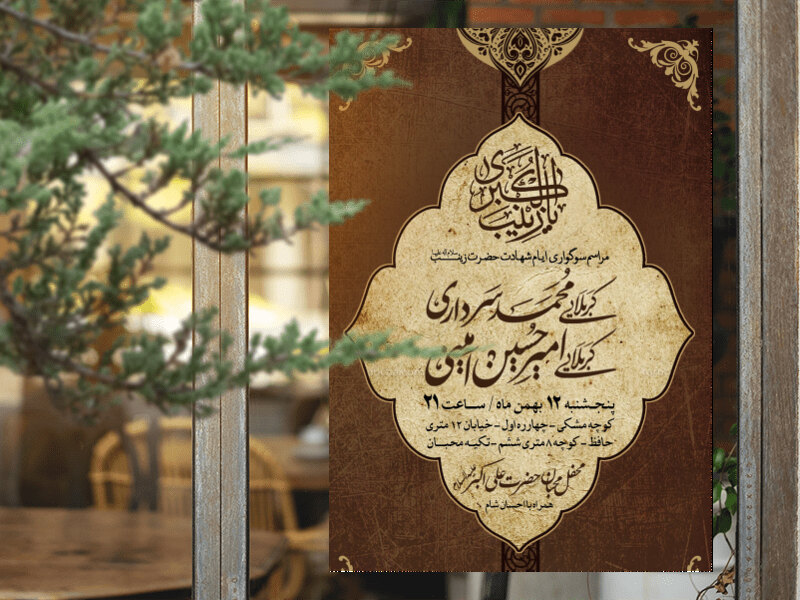 یا زینب الکبری
مراسم سوگواری ایام شهادت حضرت زینب سلام الله علیها
کربلایی محمد سرداری
کربلایی امیرحسین امینی
پنجشنبه ۱۲ بهمن ماه / ساعت ۲۱
کوچه مشکی - چهارره اول - خیابان ۱۲ متری
حافظ - کوچه ۸ متری ششم - تکیه محبان
محفل محبان حضرت علی اکبر
همراه با احسان شام